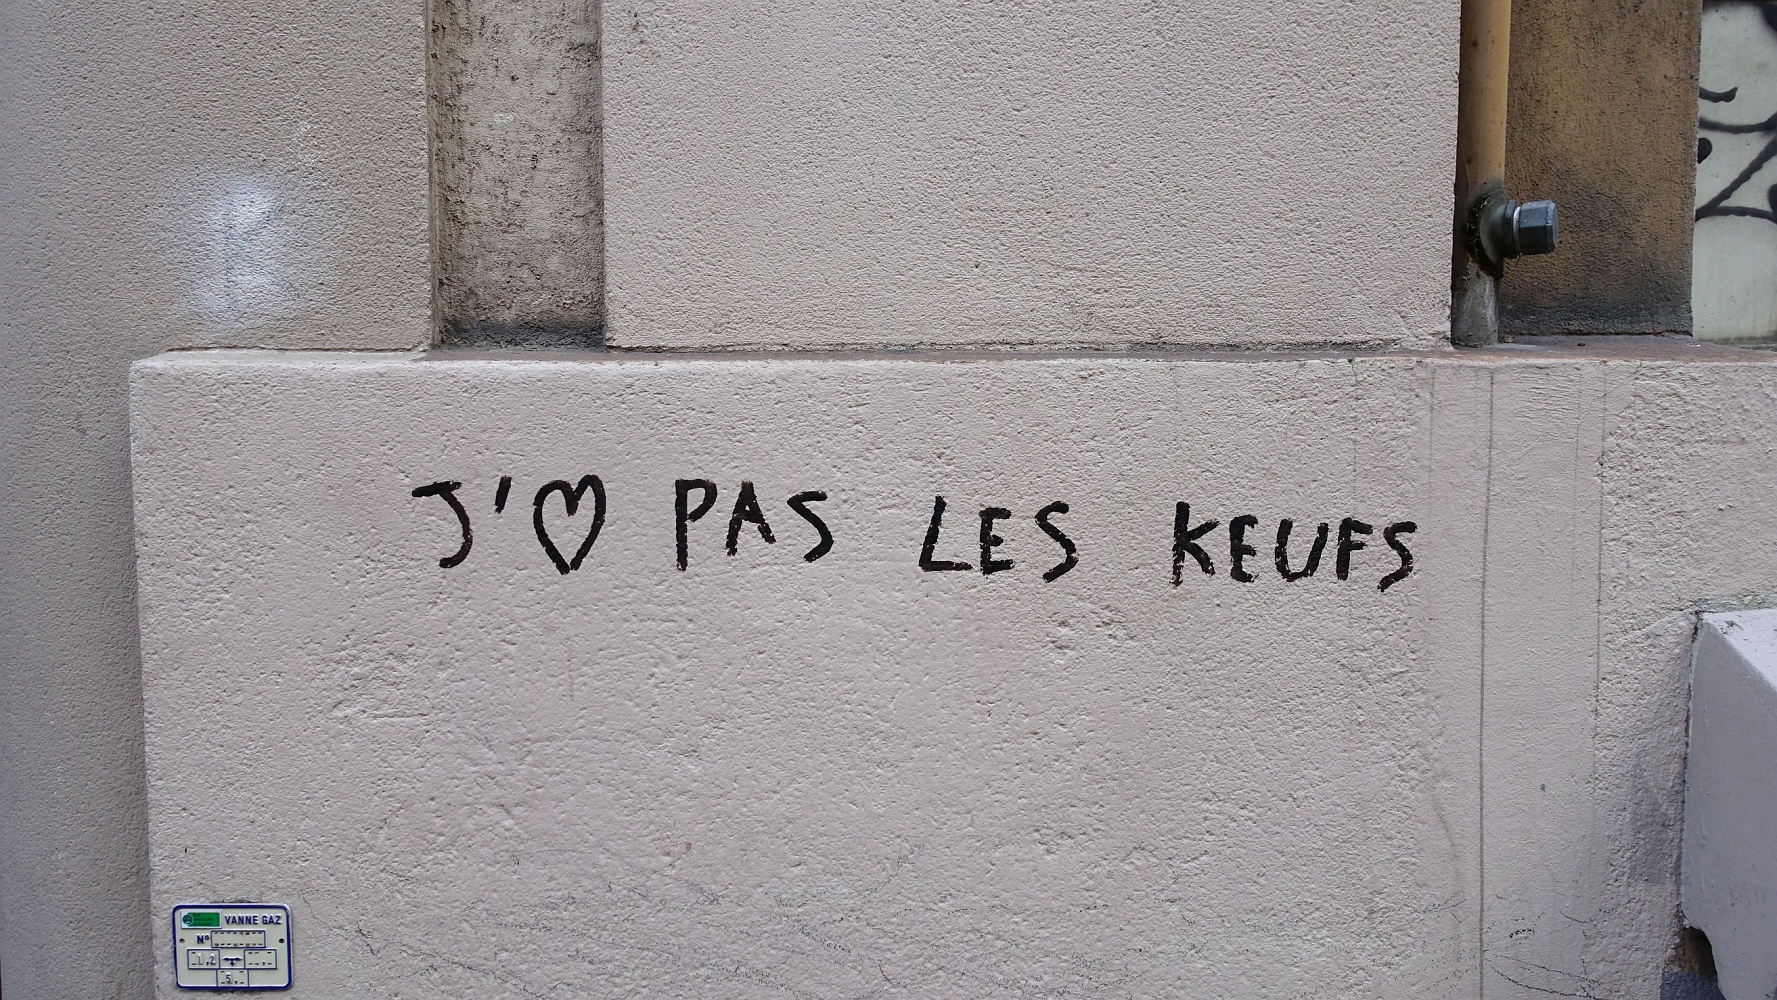 J'♡ PAS LES KEUFS
VANNE GAZ
N°
1,2
5,